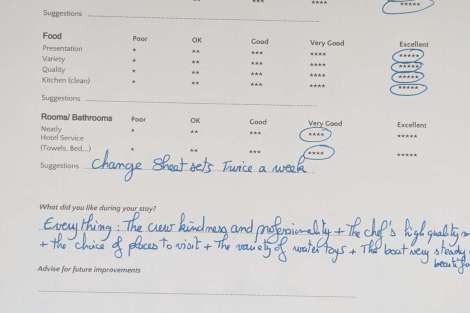 **** *****
Suggestions
Food Poor OK Good Very Good Excellent
Presentation * ** *** **** *****
Variety * ** *** **** *****
Quality * ** *** **** *****
Kitchen (clean) * ** *** **** *****
Suggestions
Rooms/ Bathrooms Poor OK Good Very Good Excellent
Neatly * ** *** **** *****
Hotel Service
(Towels, Bed...) * ** *** **** *****
Suggestions Change Sheat sets Twice a week
What did you like during your stay?
Everything : The crew kindness and professionality + The chef's high quality
+ the choice of places to visit + The variety of water toys + The boat very steady
Advise for future improvements